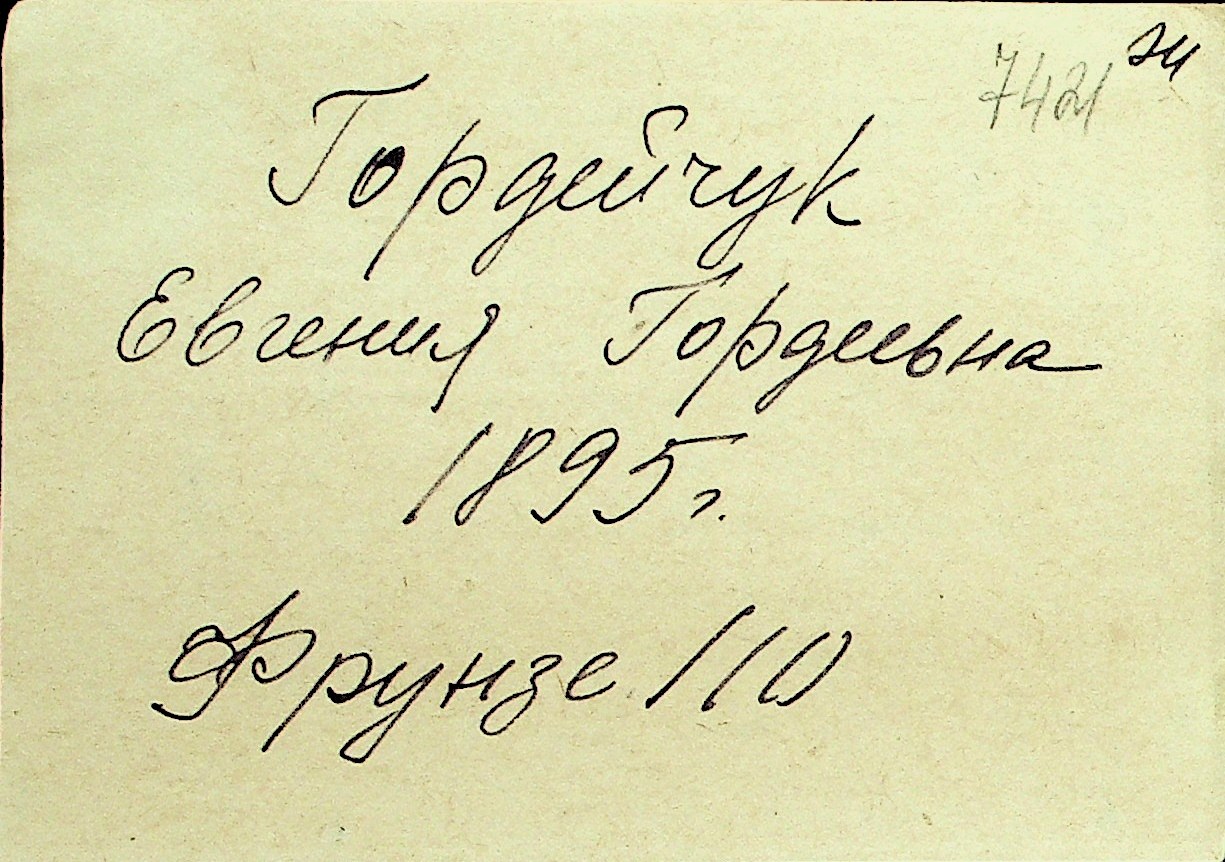 7421
Гордейчук
Евгения Гордеевна
1895 г.
Фрунзе 110